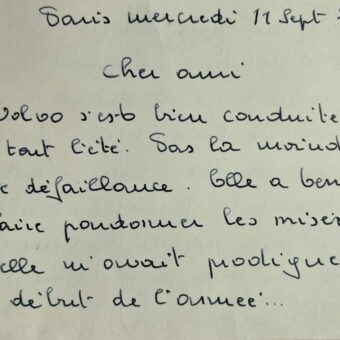 Paris mercredi 11 Sept
Cher ami
Volvo s'est bien conduite
tout l'été. Pas la moind
défaillance. Elle a
faire pardonner les misèr
elle m'avait prodigué
début de l'année...